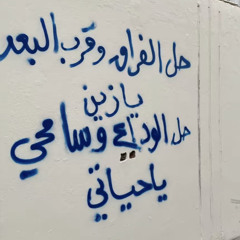 حل الفراق وقرب البعد
يا زين
حل الوداع وسامحي
يا حياتي